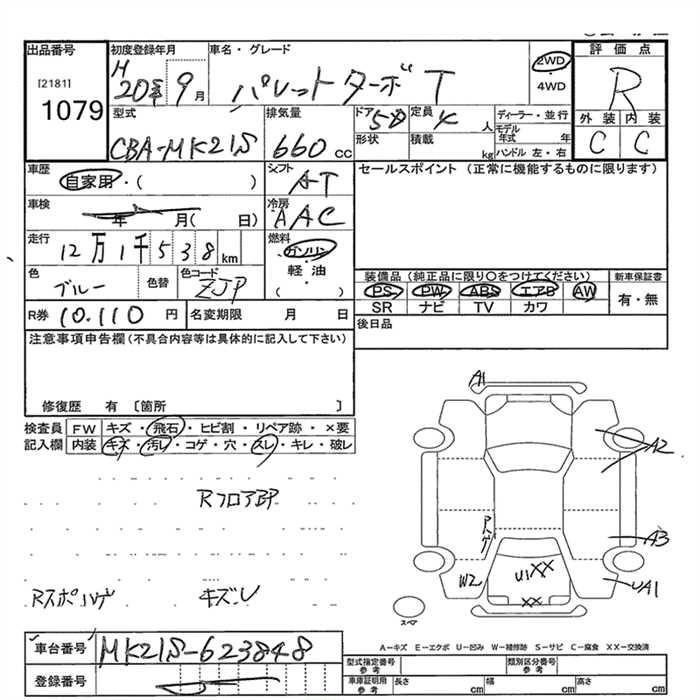 出品番号
[2181]
1079
初度登録年月
H 20年 9月
車名・グレード
パレットターボ T
2WD
・
4WD
評価点
R
外装 内装
C C
型式
CBA-MK21S
排気量
660 cc
ドア 5
形状
定員 4 人
積載 kg
ディーラー・並行
モデル年式 年
ハンドル 左・右
車歴
自家用・( )
シフト
AT
セールスポイント (正常に機能するものに限ります)
車検
年 月( 日)
冷房
AAC
走行
12万1千538 km
燃料
ガソリン
軽・油
( )
色
ブルー
色替
色コード
ZJP
装備品 (純正品に限り〇をつけてください)
PS PW ABS エアB AW
SR ナビ TV カワ
新車保証書
有・無
R券 10.110 円
名変期限 月 日
後日品
注意事項申告欄 (不具合内容等は具体的に記入して下さい)
修復歴 有 〔箇所 〕
検査員
記入欄
FW キズ・飛石・ヒビ割・リペア跡・×要
内装 キズ・汚レ・コゲ・穴・スレ・キレ・破レ
Rフロア凹
Rスポ ハゲ キズレ
A1
A2
A3
UA1
W2
U1 XX
XX
スペア
車台番号 MK21S-623848
登録番号
A-キズ E-エクボ U-凹み W-補修跡 S-サビ C-腐食 XX-交換済
型式指定番号
参考
類別区分番号
参考
車庫証明用
参考
長さ cm
幅 cm
高さ cm